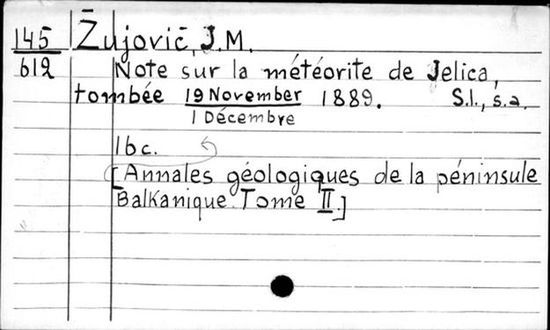 145 Žujovič, J.M.
612 Note sur la météorite de Jelica,
tombée 19 November 1889. S.l., s.a.
1 Décembre
1bc.
[Annales géologiques de la péninsule
Balkanique. Tome II.]